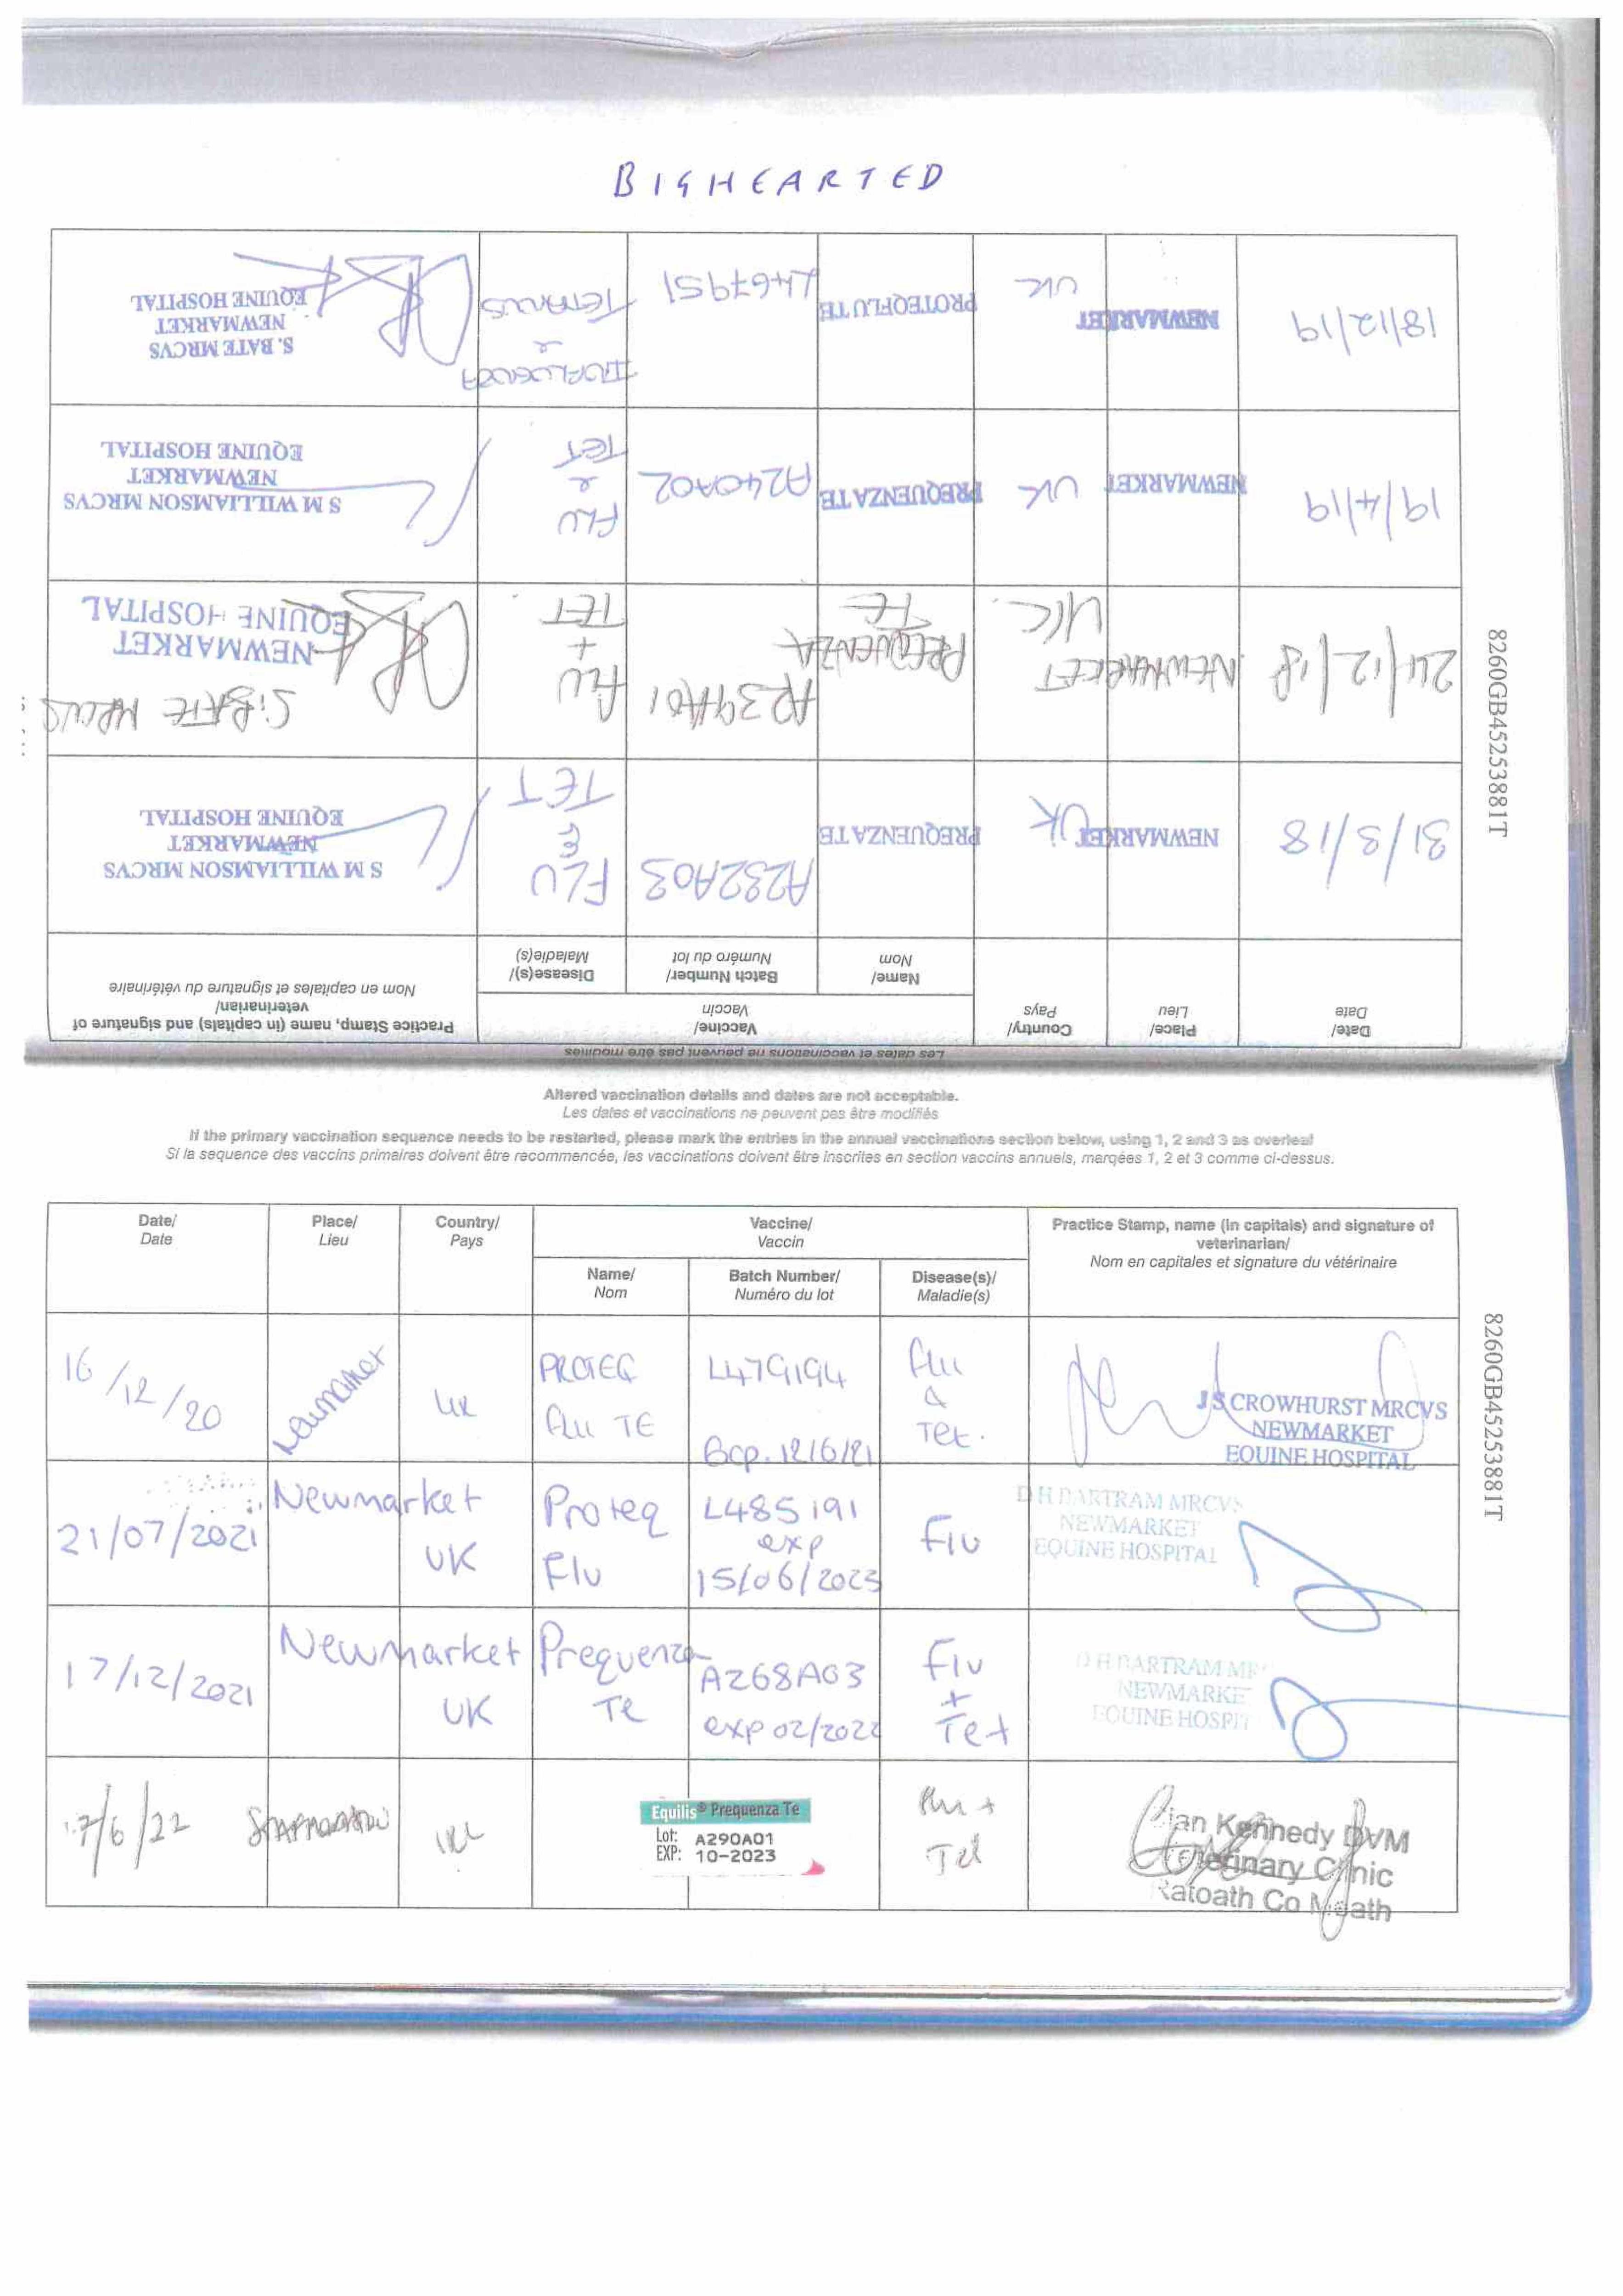 BIGHEARTED
Les dates et vaccinations ne peuvent pas être modifiés
Date/
Date
Place/
Lieu
Country/
Pays
Vaccine/
Vaccin
Name/
Nom
Batch Number/
Numéro du lot
Disease(s)/
Maladie(s)
Practice Stamp, name (in capitals) and signature of
veterinarian/
Nom en capitales et signature du vétérinaire
31/3/18
NEWMARKET
UK
PREQUENZA TE
A232A03
FLU
&
TET
S M WILLIAMSON MRCVS
NEWMARKET
EQUINE HOSPITAL
24/12/18
NEWMARKET
UK
PREQUENZA
TE
A239A01
FLU
+
TET
S. BATE MRCVS
NEWMARKET
EQUINE HOSPITAL
19/4/19
NEWMARKET
UK
PREQUENZA TE
A240A02
FLU
&
TET
S M WILLIAMSON MRCVS
NEWMARKET
EQUINE HOSPITAL
18/12/19
NEWMARKET
UK
PROTEQFLUTE
L467951
INFLUENZA
&
TETANUS
S. BATE MRCVS
NEWMARKET
EQUINE HOSPITAL
8260GB45253881T
Altered vaccination details and dates are not acceptable.
Les dates et vaccinations ne peuvent pas être modifiés
If the primary vaccination sequence needs to be restarted, please mark the entries in the annual vaccinations section below, using 1, 2 and 3 as overleaf
Si la sequence des vaccins primaires doivent être recommencée, les vaccinations doivent être inscrites en section vaccins annuels, marqées 1, 2 et 3 comme ci-dessus.
Date/
Date
Place/
Lieu
Country/
Pays
Vaccine/
Vaccin
Name/
Nom
Batch Number/
Numéro du lot
Disease(s)/
Maladie(s)
Practice Stamp, name (in capitals) and signature of
veterinarian/
Nom en capitales et signature du vétérinaire
16/12/20
Newmarket
UK
PROTEQ
Flu TE
L479194
Exp. 12/6/21
Flu
&
Tet.
J S CROWHURST MRCVS
NEWMARKET
EQUINE HOSPITAL
21/07/2021
Newmarket
UK
Proteq
Flu
L485191
exp
15/06/2023
Flu
D H BARTRAM MRCVS
NEWMARKET
EQUINE HOSPITAL
17/12/2021
Newmarket
UK
Prequenza
Te
A268A03
exp 02/2022
Flu
+
Tet
D H BARTRAM MR
NEWMARKE
EQUINE HOSPIT
17/6/22
IRL
Equilis® Prequenza Te
Lot: A290A01
EXP: 10-2023
Flu +
Tet
Kennedy DVM
Veterinary Clinic
Ratoath Co Meath
8260GB45253881T